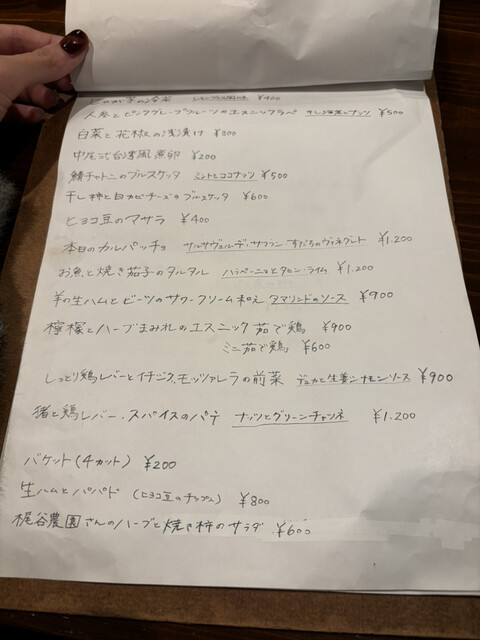 じゃが芋の冷菜 ¥400
人参とピンクグレープフルーツのエスニックラペ ¥500
白菜と花椒の浅漬け ¥300
中尾式台湾風煮卵 ¥200
鯖チャトニのブルスケッタ ミントとココナッツ ¥500
干し柿と白カビチーズのブルスケッタ ¥600
ヒヨコ豆のマサラ ¥400
本日のカルパッチョ サルサヴェルデ・サフラン すだちのヴィネグレット ¥1,200
お魚と焼き茄子のタルタル ハラペーニョとタヒン・ライム ¥1,200
羊の生ハムとビーツのサワークリーム和え タマリンドのソース ¥900
檸檬とハーブまみれのエスニック茹で鶏 ¥900
ミニ茹で鶏 ¥600
しっとり鶏レバーとイチジク、モッツァレラの前菜 デュカと生姜シナモンソース ¥900
猪と鶏レバー・スパイスのパテ ナッツとグリーンチャツネ ¥1,200
バケット(4カット) ¥200
生ハムとパパド (ヒヨコ豆のチップス) ¥800
梶谷農園さんのハーブと焼き柿のサラダ ¥600